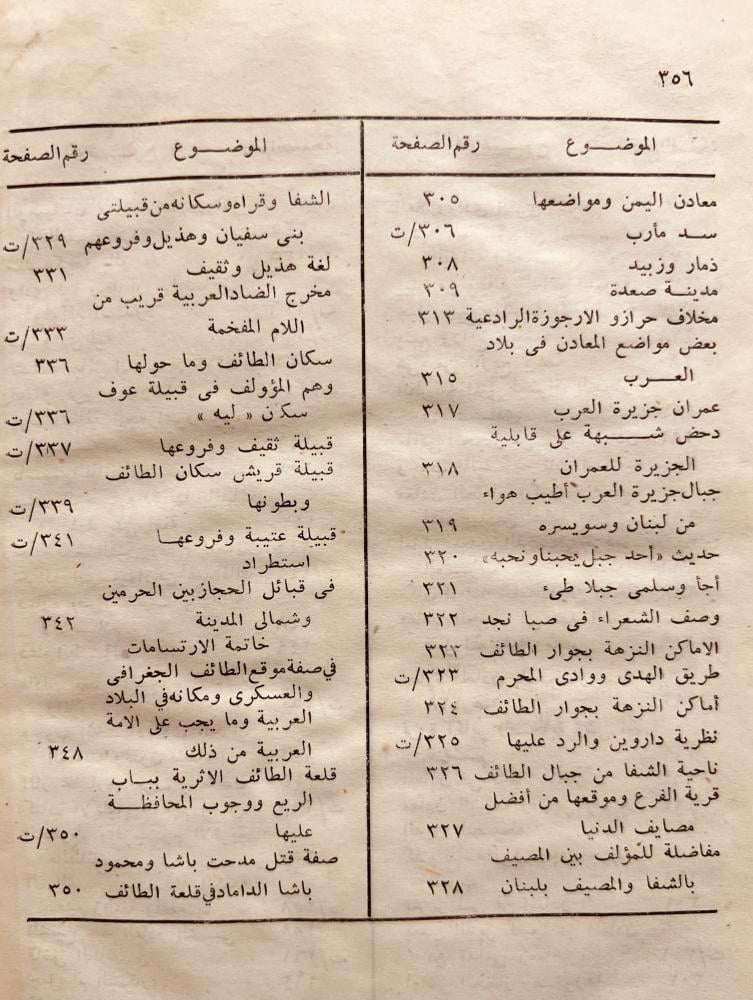 ٣٥٦
الموضـــوع رقم الصفحة
معادن اليمن ومواضعها ٣٠٥
ســد مأرب ٣٠٦/ت
ذمار وزبيد ٣٠٨
مدينــة صعدة ٣٠٩
مخلاف حرازو الارجوزة الرادعية ٣١٣
بعض مواضع المعادن فى بلاد
العـــرب ٣١٥
عمران جزيرة العرب ٣١٧
دحض شـــبهة على قابلية
الجزيرة للعمران ٣١٨
جبال جزيرة العرب أطيب هواء
من لبنان وسويسره ٣١٩
حديث «أحد جبل يحبنا ونحبه» ٣٢٠
أجأ وسلمى جبلا طىء ٣٢١
وصف الشعراء فى صبا نجد ٣٢٢
الاماكن النزهة بجوار الطائف ٣٢٣
طريق الهدى ووادى المحرم ٣٢٣/ت
أماكن النزهة بجوار الطائف ٣٢٤
نظرية داروين والرد عليها ٣٢٥/ت
ناحية الشفا من جبال الطائف ٣٢٦
قرية الفرع وموقعها من أفضل
مصايف الدنيا ٣٢٧
مفاضلة للمؤلف بين المصيف
بالشفا والمصيف بلبنان ٣٢٨
الموضـــوع رقم الصفحة
الشفا وقراه وسكانه من قبيلتى
بنى سفيان وهذيل وفروعهم ٣٢٩/ت
لغة هذيل وثقيف ٣٣١
مخرج الضاد العربية قريب من
اللام المفخمة ٣٣٣/ت
سكان الطائف وما حولها ٣٣٦
وهم المؤولف فى قبيلة عوف
سكان « ليه » ٣٣٦/ت
قبيلة ثقيف وفروعها ٣٣٧/ت
قبيلة قريش سكان الطائف
وبطونها ٣٣٩/ت
قبيلة عتيبة وفروعهــا ٣٤١/ت
استطراد
فى قبائل الحجاز بين الحرمين
وشمالى المدينة ٣٤٢
خاتمة الارتسامات
في صفة موقع الطائف الجغرافى
والعسكرى ومكانه في البلاد
العربية وما يجب على الامة
العربية من ذلك ٣٤٨
قلعة الطائف الاثرية ببــاب
الريع ووجوب المحافظــة
عليها ٣٥٠/ت
صفة قتل مدحت باشا ومحمود
باشا الداماد في قلعة الطائف ٣٥٠